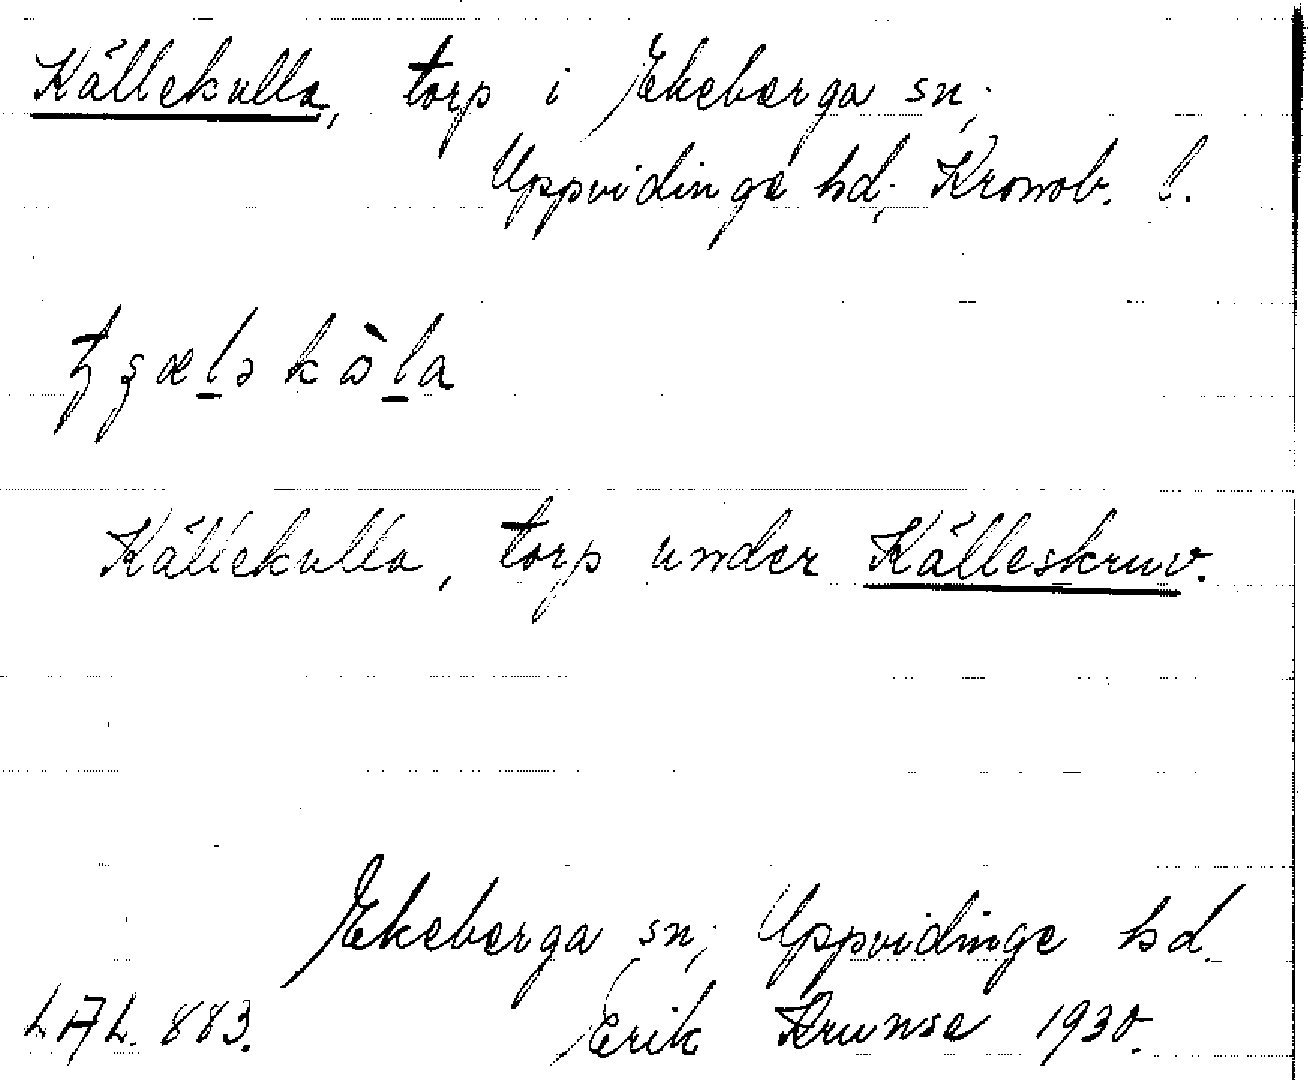 Källekulla, torp i Ekeberga sn;
Uppvidinge hd; Kronob. l.
Källekulla, torp under Källeskruv.
Ekeberga sn; Uppvidinge hd.
LAL. 883. Erik Krunse 1930.